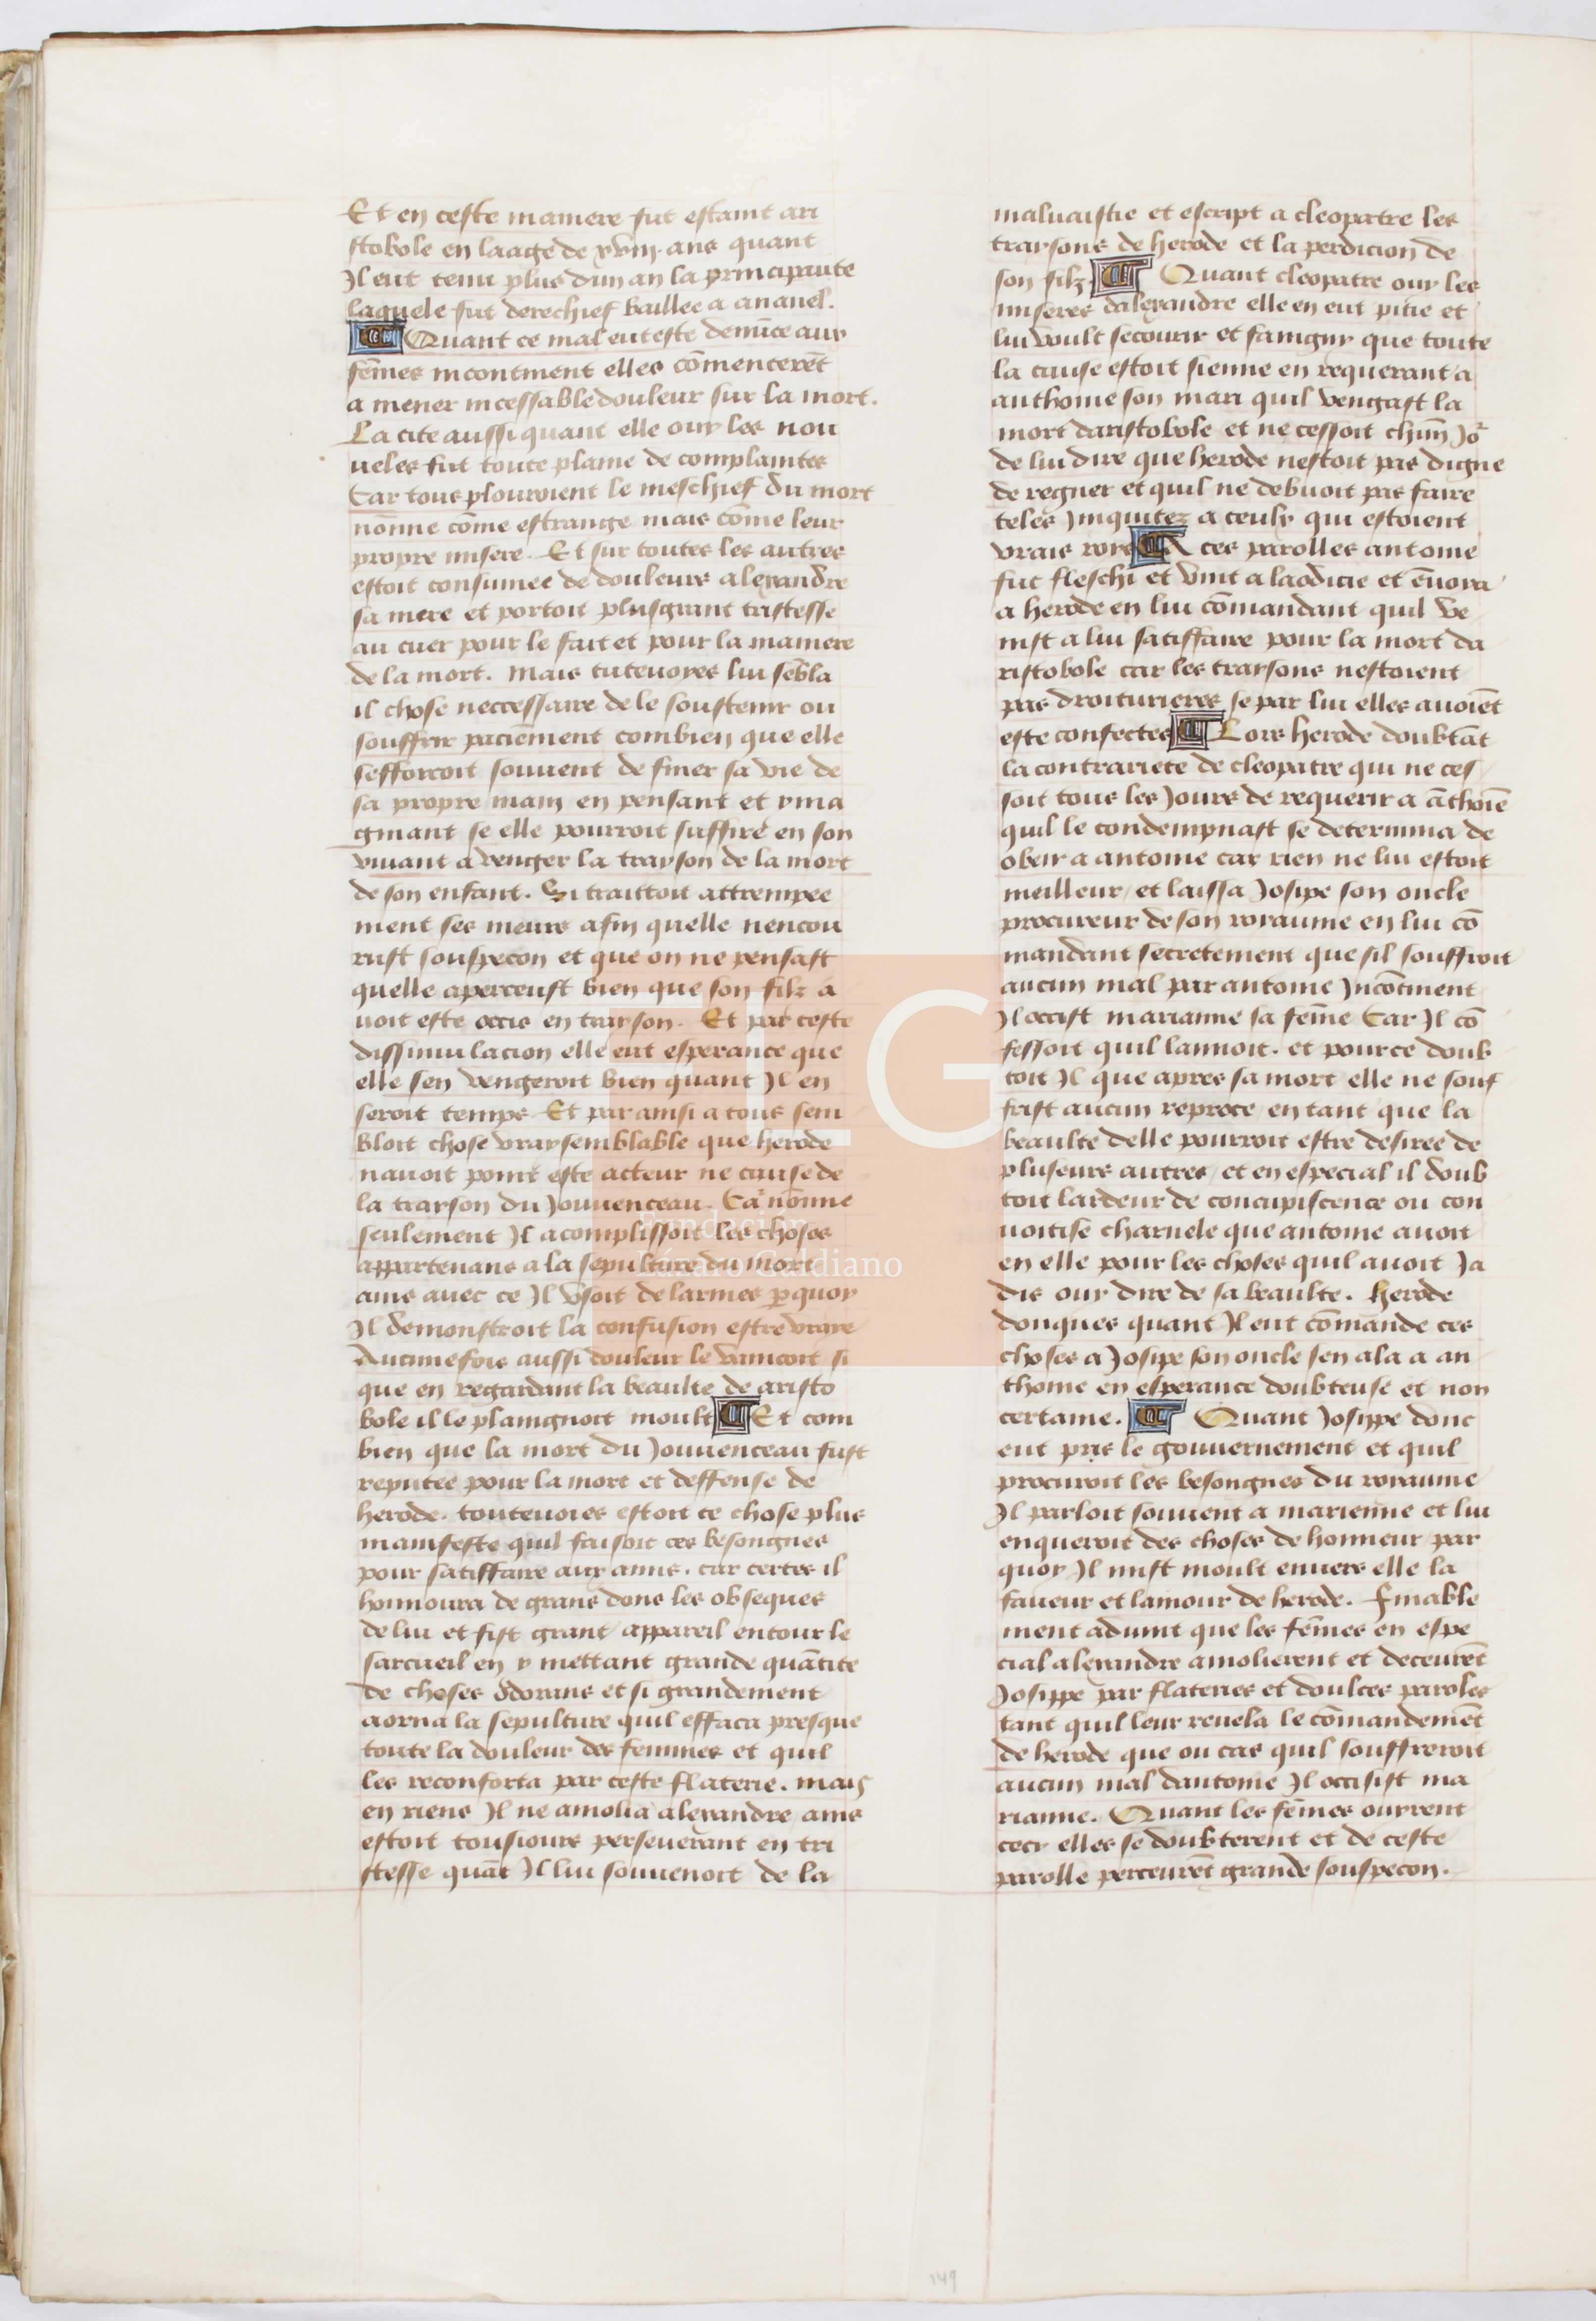 Et en ceste maniere fut estaint ari
stobole en laage de xviij. ans quant
Il eut tenu plus dun an la principaute
laquele fut derechief baillee a ananel.
¶ Quant ce mal eut este denūce aux
fēmes incontinent elles cōmencerēt
a mener incessable douleur sur la mort.
La cite aussi quant elle ouy les nou
ueles fut toute plaine de complaintes
Car tous plouroient le meschief du mort
nōnne cōme estrange mais cōme leur
propre misere. Et sur toutes les autres
estoit consumee de douleurs alexandre
sa mere et portoit plusgrant tristesse
au cuer pour le fait et pour la maniere
de la mort. Mais tutevoyes lui sēbla
il chose neccessaire de le soustenir ou
souffrir paciēment combien que elle
sefforcoit souuent de finer sa vie de
sa propre main en pensant et yma
ginant se elle pourroit suffire en son
viuant a venger la trayson de la mort
de son enfant. Si traittoit attrempee
ment ses meurs afin quelle nencou
rust souspecon et que on ne pensast
quelle aperceust bien que son filz a
uoit este occis en trayson. Et par ceste
dissimulacion elle eut esperance que
elle sen vengeroit bien quant Il en
seroit temps. Et par ainsi a tous sem
bloit chose vraysemblable que herode
nauoit point este acteur ne cause de
la trayson du Jouuenceau. Car nōnne
seulement Il acomplissoit les choses
appartenans a la sepulture du mort
ains auec ce Il vsoit de larmes ꝑquoy
Il demonstroit la confusion estre vraye
Aucunefois aussi douleur le vaincoit si
que en regardant la beaulte de aristo
bole il le plaingnoit moult ¶ Et com
bien que la mort du Jouuenceau fust
reputee pour la mort et deffense de
herode. toutevoies estoit ce chose plus
manifeste quil faisoit ces besongnes
pour satiffaire aux amis. car certes il
honnoura de grans dons les obseques
de lui et fist grant appareil entour le
sarcueil en y mettant grande quātite
de choses odorans et si grandement
aorna la sepulture quil effaca presque
toute la douleur des femmes et quil
les reconforta par ceste flaterie. mais
en riens Il ne amolia alexandre ains
estoit tousiours perseuerant en tri
stesse quāt Il lui souuenoit de la
maluaistie et escript a cleopatre les
traysons de herode et la perdicion de
son filz. ¶ Quant cleopatre ouy les
miseres dalexandre elle en eut pitie et
lui voult secourir et faingny que toute
la cause estoit sienne en requerant a
anthoine son mari quil vengast la
mort daristobole et ne cessoit chūn Jor
de lui dire que herode nestoit pas digne
de regner et quil ne debuoit pas faire
teles Iniquitez a ceulx qui estoient
vrais roys ¶ A ces parolles antoine
fut fleschi et vint a laodicie et ēuoya
a herode en lui cōmandant quil ve
nist a lui satiffaire pour la mort da
ristobole car les traysons nestoient
pas droiturieres se par lui elles auoiēt
este confectes ¶ Lors herode doubtāt
la contrariete de cleopatre qui ne ces
soit tous les Jours de requerir a āthoiē
quil le condempnast se determina de
obeir a antoine car rien ne lui estoit
meilleur / et laissa Josipe son oncle
procureur de son royaume en lui cō
mandant secretement que sil souffroit
aucun mal par antoine Incōtinent
Il occist marianne sa fēme Car Il cō
fessoit quil lamoit. et pource doub
toit Il que apres sa mort elle ne souf
frist aucun reproce / en tant que la
beaulte delle pourroit estre desiree de
pluseurs autres / et en especial il doub
toit lardeur de concupiscence ou con
uoitise charnele que antoine auoit
en elle pour les choses quil auoit Ja
dis ouy dire de sa beaulte. Herode
donques quant Il eut cōmande ces
choses a Josipe son oncle sen ala a an
thoine en esperance doubteuse et non
certaine. ¶ Quant Josippe donc
eut pris le gouuernement et quil
procuroit les besongnes du royaume
Il parloit souuent a marienne et lui
enqueroit des choses de honneur par
quoy Il mist moult enuers elle la
faueur et lamour de herode. Finable
ment aduint que les fēmes en espe
cial alexandre amolierent et deceurēt
Josippe par flateries et doulces paroles
tant quil leur reuela le cōmandemēt
de herode que ou cas quil souffreroit
aucun mal dantoine Il occisist ma
rianne. Quant les fēmes ouyrent
cecy elles se doubterent et de ceste
parolle perceurēt grande souspecon.
FLG
Fundación
Lázaro Galdiano
149